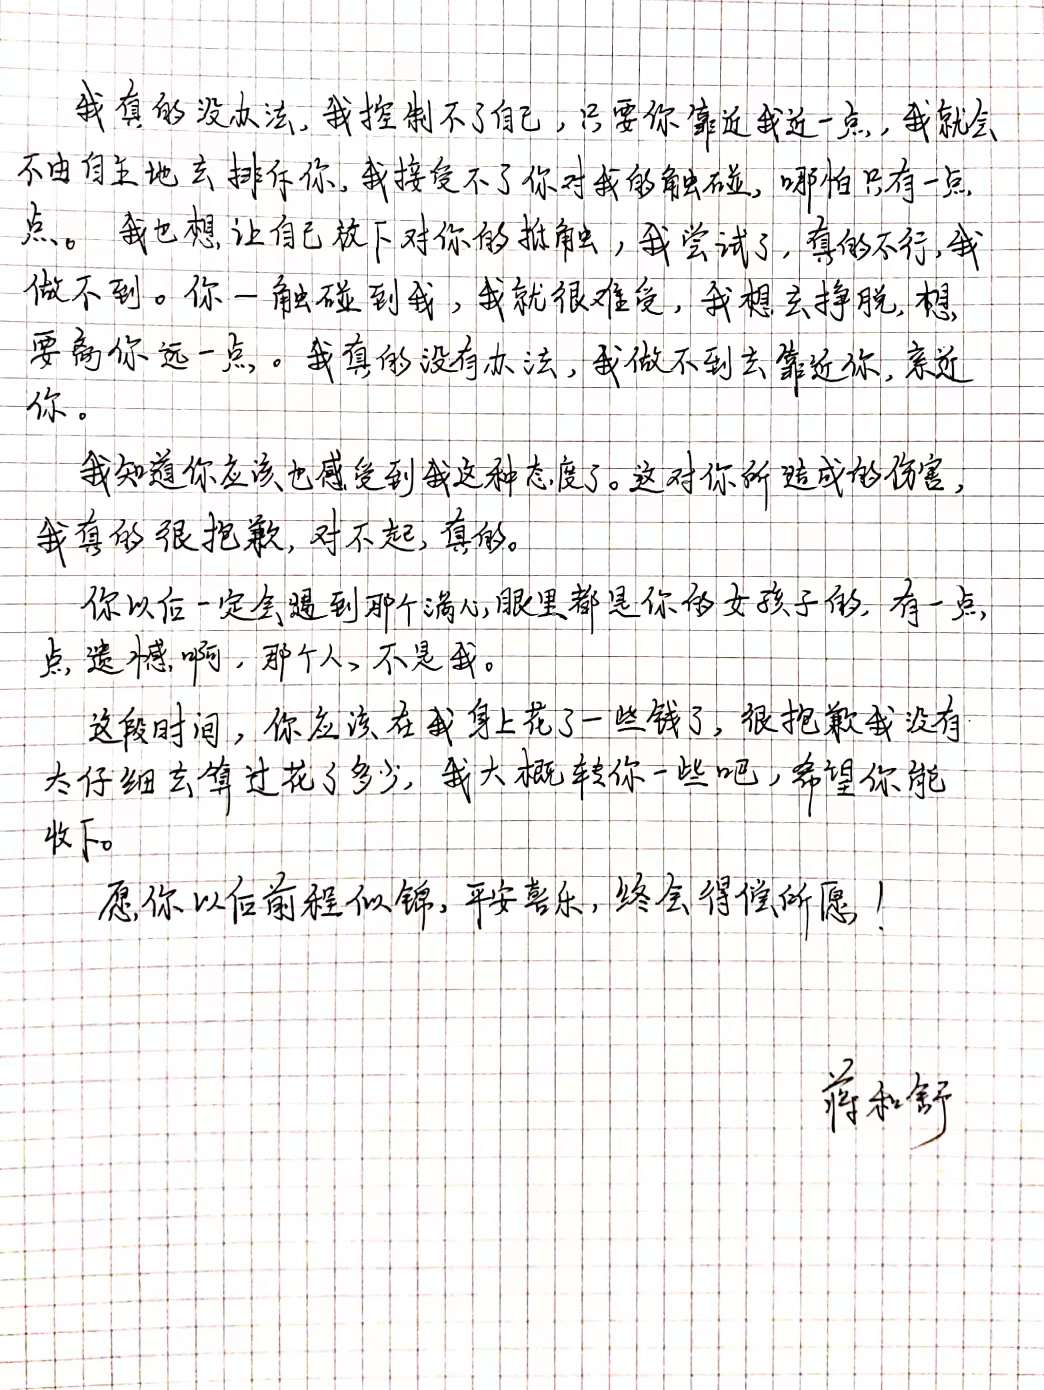 我真的没办法，我控制不了自己，只要你靠近我近一点，我就会
不由自主地去排斥你，我接受不了你对我的触碰，哪怕只有一点
点。我也想让自己放下对你的抵触，我尝试了，真的不行，我
做不到。你一触碰到我，我就很难受，我想去挣脱，想
要离你远一点。我真的没有办法，我做不到去靠近你，亲近
你。
我知道你应该也感受到我这种态度了。这对你所造成的伤害，
我真的很抱歉，对不起，真的。
你以后一定会遇到那个满心，眼里都是你的女孩子的，有一点
点遗憾啊，那个人，不是我。
这段时间，你应该在我身上花了一些钱了，很抱歉我没有
太仔细去算过花了多少，我大概转你一些吧，希望你能
收下。
愿你以后前程似锦，平安喜乐，终会得偿所愿！
蒋和舒